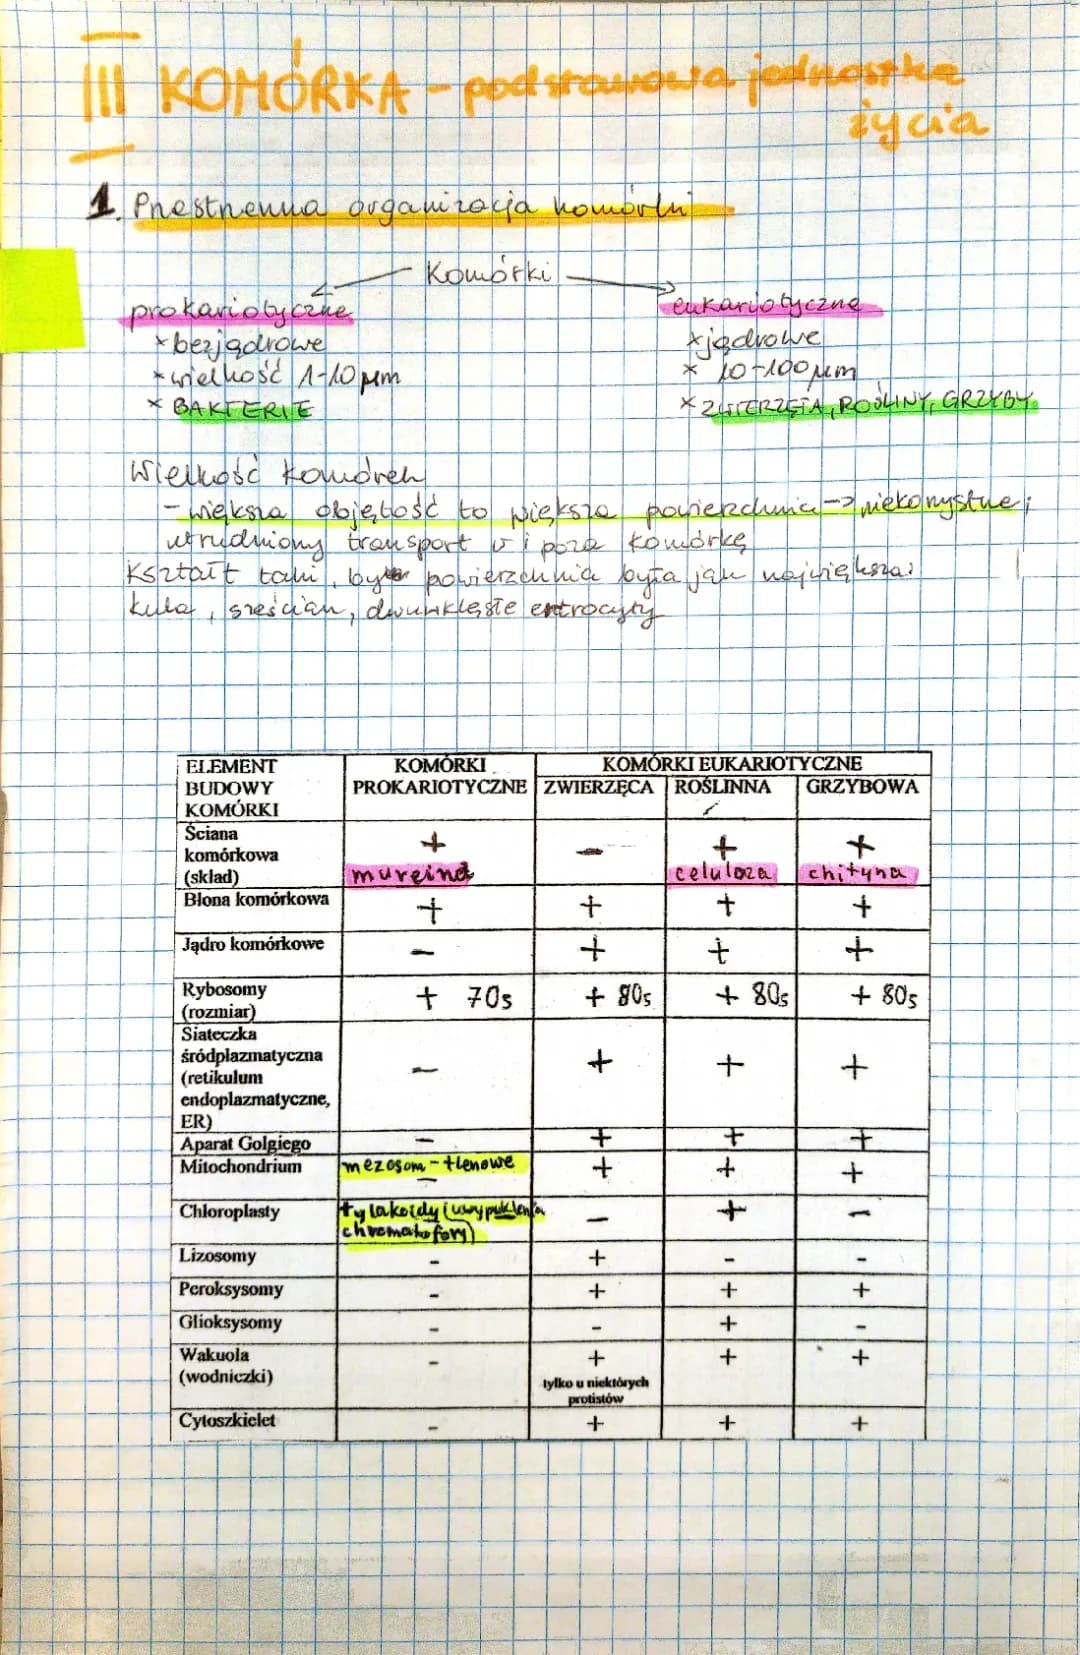 III KOMÓRKA - podstawowa jednostka
życia
1. Przestrzenna organizacja komórki
Komórki
prokariotyczne
eukariotyczne
x bezjądrowe
x jądrowe
x wielkość 1-10 μm
x 10-100 μm
x BAKTERIE
x ZWIERZĘTA, ROŚLINY, GRZYBY
Wielkość komórek
- większa objętość to większa powierzchnia -> niekorzystne;
utrudniony transport w i poza komórkę
Kształt taki, by powierzchnia była jak największa:
kula, sześcian, dwuwklęsłe ertrocyty
ELEMENT BUDOWY KOMÓRKI | KOMÓRKI PROKARIOTYCZNE | KOMÓRKI EUKARIOTYCZNE
ZWIERZĘCA | ROŚLINNA | GRZYBOWA
Ściana komórkowa (skład) | + mureina | - | + celuloza | + chityna
Błona komórkowa | + | + | + | +
Jądro komórkowe | - | + | + | +
Rybosomy (rozmiar) | + 70s | + 80s | + 80s | + 80s
Siateczka śródplazmatyczna (retikulum endoplazmatyczne, ER) | - | + | + | +
Aparat Golgiego | - | + | + | +
Mitochondrium | mezosom - tlenowe - | + | + | +
Chloroplasty | tylakoidy (uwypuklenia chromatofory) | - | + | -
Lizosomy | - | + | - | -
Peroksysomy | - | + | + | +
Glioksysomy | - | - | + | -
Wakuola (wodniczki) | - | + tylko u niektórych protistów | + | +
Cytoszkielet | - | + | + | +